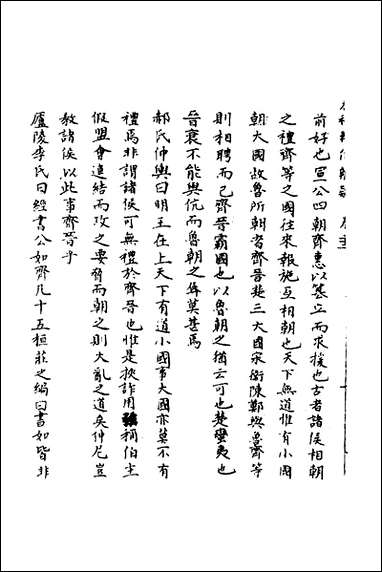 前好也宣公四朝齊惠以篡立而求援也古者諸侯相朝
之禮齊等之國往來報施互相朝也天下無道惟有小國
朝大國故魯所朝者齊晉楚三大國宋衛陳鄭與魯齊等
則相聘而已齊晉霸國也以魯朝之猶云可也楚蠻夷也
晉衰不能與伉而魯朝之辱莫甚焉
郝氏仲輿曰明王在上天下有道小國事大國亦莫不有
禮焉非謂諸侯可無禮於齊晉也惟是挾詐用稱伯主
假盟會連結而攻之要脅而朝之則大亂之道矣仲尼豈
教諸侯以此事齊晉乎
廬陵李氏曰經書公如齊凡十五桓莊之編曰書如皆非